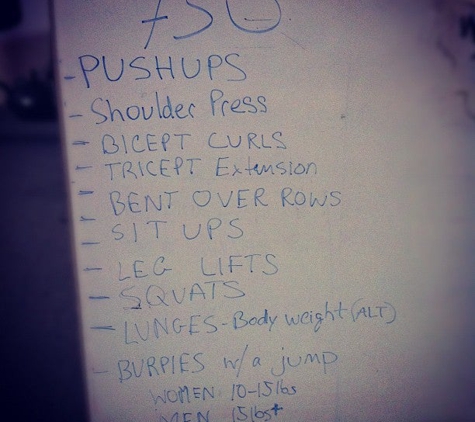 -PUSHUPS
- Shoulder Press
- BICEPT CURLS
- TRICEPT Extension
- BENT OVER ROWS
- SIT UPS
- LEG LIFTS
- SQUATS
- LUNGES-Body weight (ALT)
- BURPIES w/a jump
WOMEN 10-15lbs
MEN 15lbs+